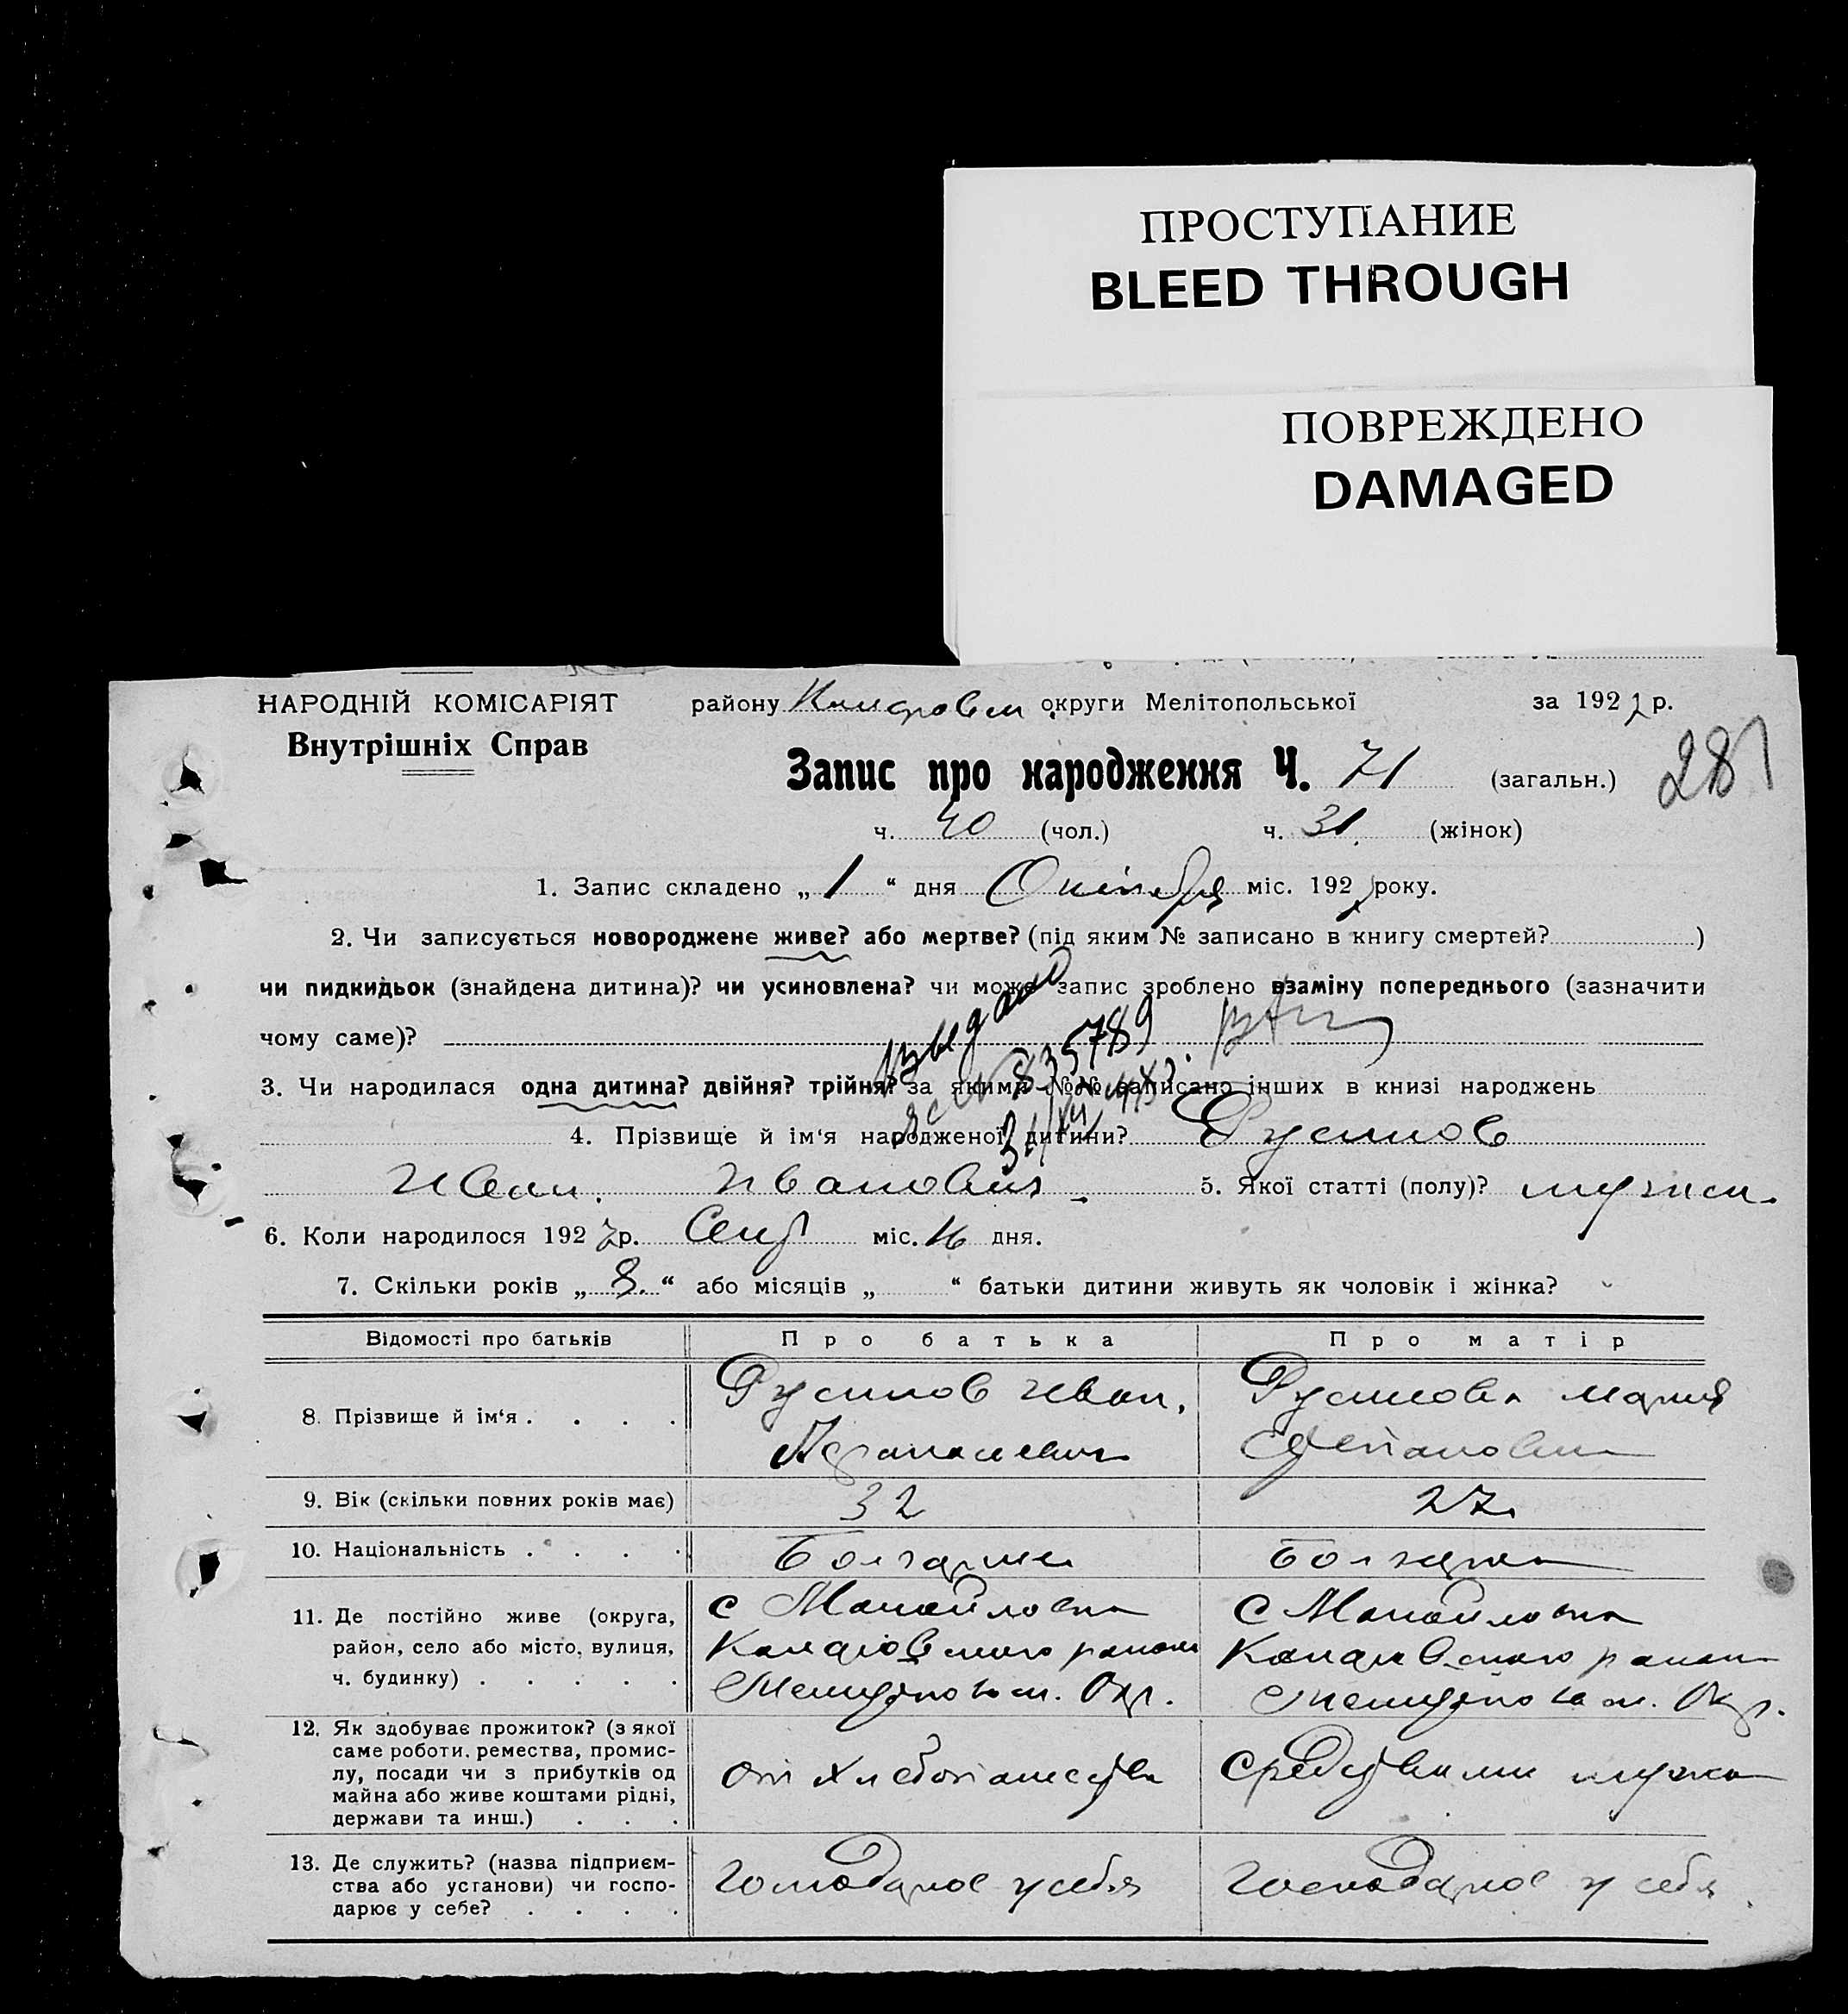 ПРОСТУПАНИЕ
BLEED THROUGH
ПОВРЕЖДЕНО
DAMAGED
НАРОДНІЙ КОМІСАРІЯТ
Внутрішніх Справ
району округи Мелітопольської за 192 р.
Запис про народження Ч. 71 (загальн.) 281
ч. 40 (чол.) ч. 31 (жінок)
1. Запис складено „ 1 “ дня Октября міс. 192 року.
2. Чи записується новороджене живе? або мертве? (під яким № записано в книгу смертей? )
чи пидкидьок (знайдена дитина)? чи усиновлена? чи може запис зроблено взаміну попереднього (зазначити
чому саме)?
3. Чи народилася одна дитина? двійня? трійня? за якими №№ записано інших в книзі народжень
4. Прізвище й ім‘я народженої дитини? Русинов
Иван. Иванович 5. Якої статті (полу)? мужск.
6. Коли народилося 1927 р. Сент міс. 16 дня.
7. Скільки років „ 8. “ або місяців „ “ батьки дитини живуть як чоловік і жінка?
Відомості про батьків Про батька Про матір
8. Прізвище й ім‘я . . . . Русинов Иван. Русинова Мария
Афанасиевич Степановна
9. Вік (скільки повних років має) 32 27
10. Національність . . . . Болгарин Болгарка
11. Де постійно живе (округа, район, село або місто, вулиця, ч. будинку) . . . . .
с Манойловка
с Манойловка
района
района
Окр.
Окр.
12. Як здобуває прожиток? (з якої
саме роботи, ремества, промис-
лу, посади чи з прибутків од
майна або живе коштами рідні,
держави та инш.) . . .
от хлебопашества
средствами мужа
13. Де служить? (назва підприєм-
ства або установи) чи госпо-
дарює у себе? . . . .
Господарює у себя
Господарює у себя